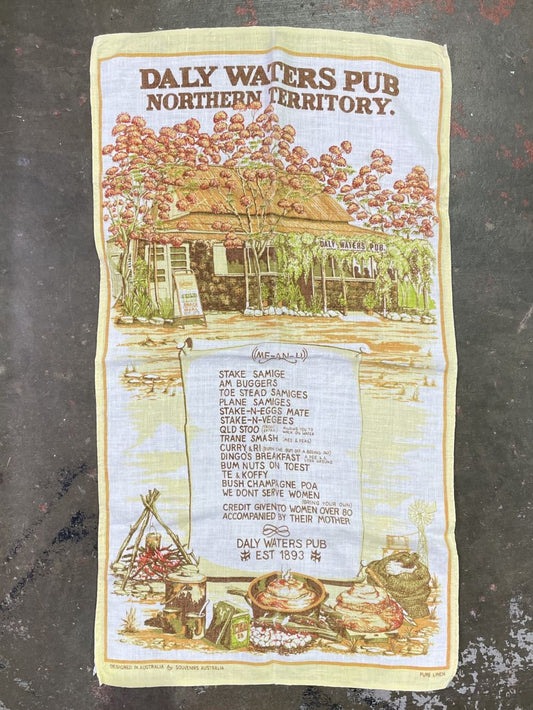 DALY WATERS PUB
NORTHERN TERRITORY.
DALY WATERS PUB
ME-AN-U
STAKE SAMIGE
AM BUGGERS
TOE STEAD SAMIGES
PLANE SAMIGES
STAKE-N-EGGS MATE
STAKE-N-VEGEES
QLD STOO MAKES YOU TO WALK ON WATER
TRANE SMASH (MEE & PEAS)
CURRY & RI
DINGO'S BREAKFAST A PEE & A LOOK AROUND
BUM NUTS ON TOEST
TE & KOFFY
BUSH CHAMPAGNE POA
WE DONT SERVE WOMEN
(BRING YOUR OWN)
CREDIT GIVEN TO WOMEN OVER 80
ACCOMPANIED BY THEIR MOTHER
DALY WATERS PUB
EST 1893
DESIGNED IN AUSTRALIA by SOUVENIRS AUSTRALIA
PURE LINEN